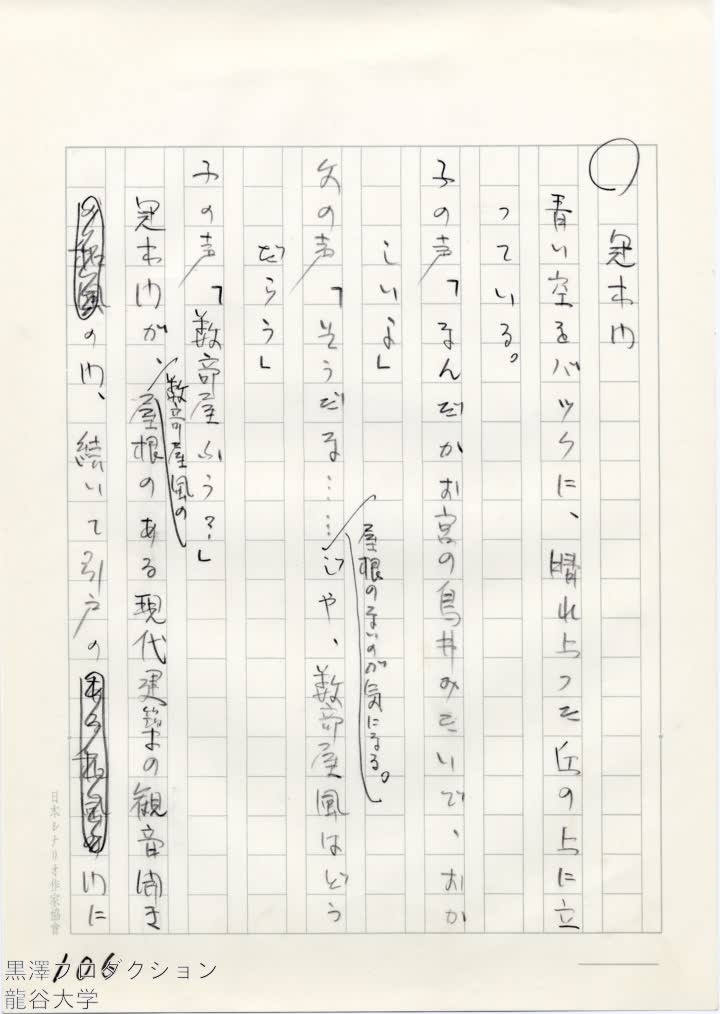 ○ 冠木門
青い空をバックに、晴れ上った丘の上に立
っている。
子の声「なんだかお宮の鳥井みたいで、おか
しいよ」
屋根のないのが気になる。
父の声「そうだな……じゃ、数寄屋風はどう
だろう」
子の声「数寄屋ふう?」
数寄屋風の
冠木門が、屋根のある現代建築の観音開き
の門、続いて引戸の門に
日本シナリオ作家協會
106
黒澤プロダクション
龍谷大学